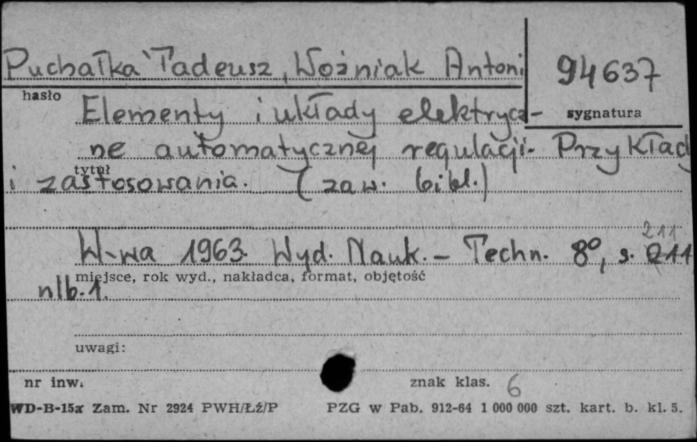 Puchałka Tadeusz, Woźniak Antoni
94637
hasło
sygnatura
Elementy i układy elektrycz-
ne automatycznej regulacji. Przykład
tytuł
i zastosowania. (zaw. bibl.)
211
W-wa 1963. Wyd. Nauk. – Techn. 8°, s. 211
miejsce, rok wyd., nakładca, format, objętość
nlb. 1.
uwagi:
nr inw.
znak klas. 6
WD-B-15a Zam. Nr 2924 PWH/Łź/P PZG w Pab. 912-64 1 000 000 szt. kart. b. kl. 5.